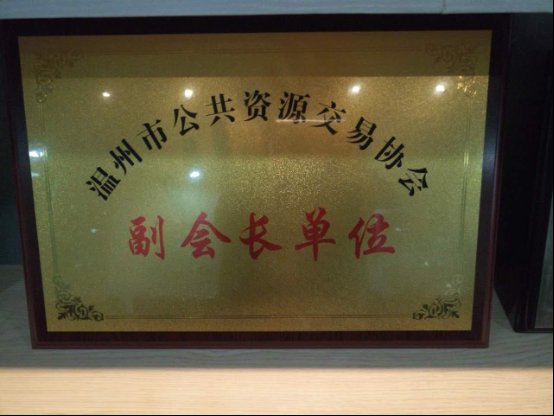 温州市公共资源交易协会
副会长单位